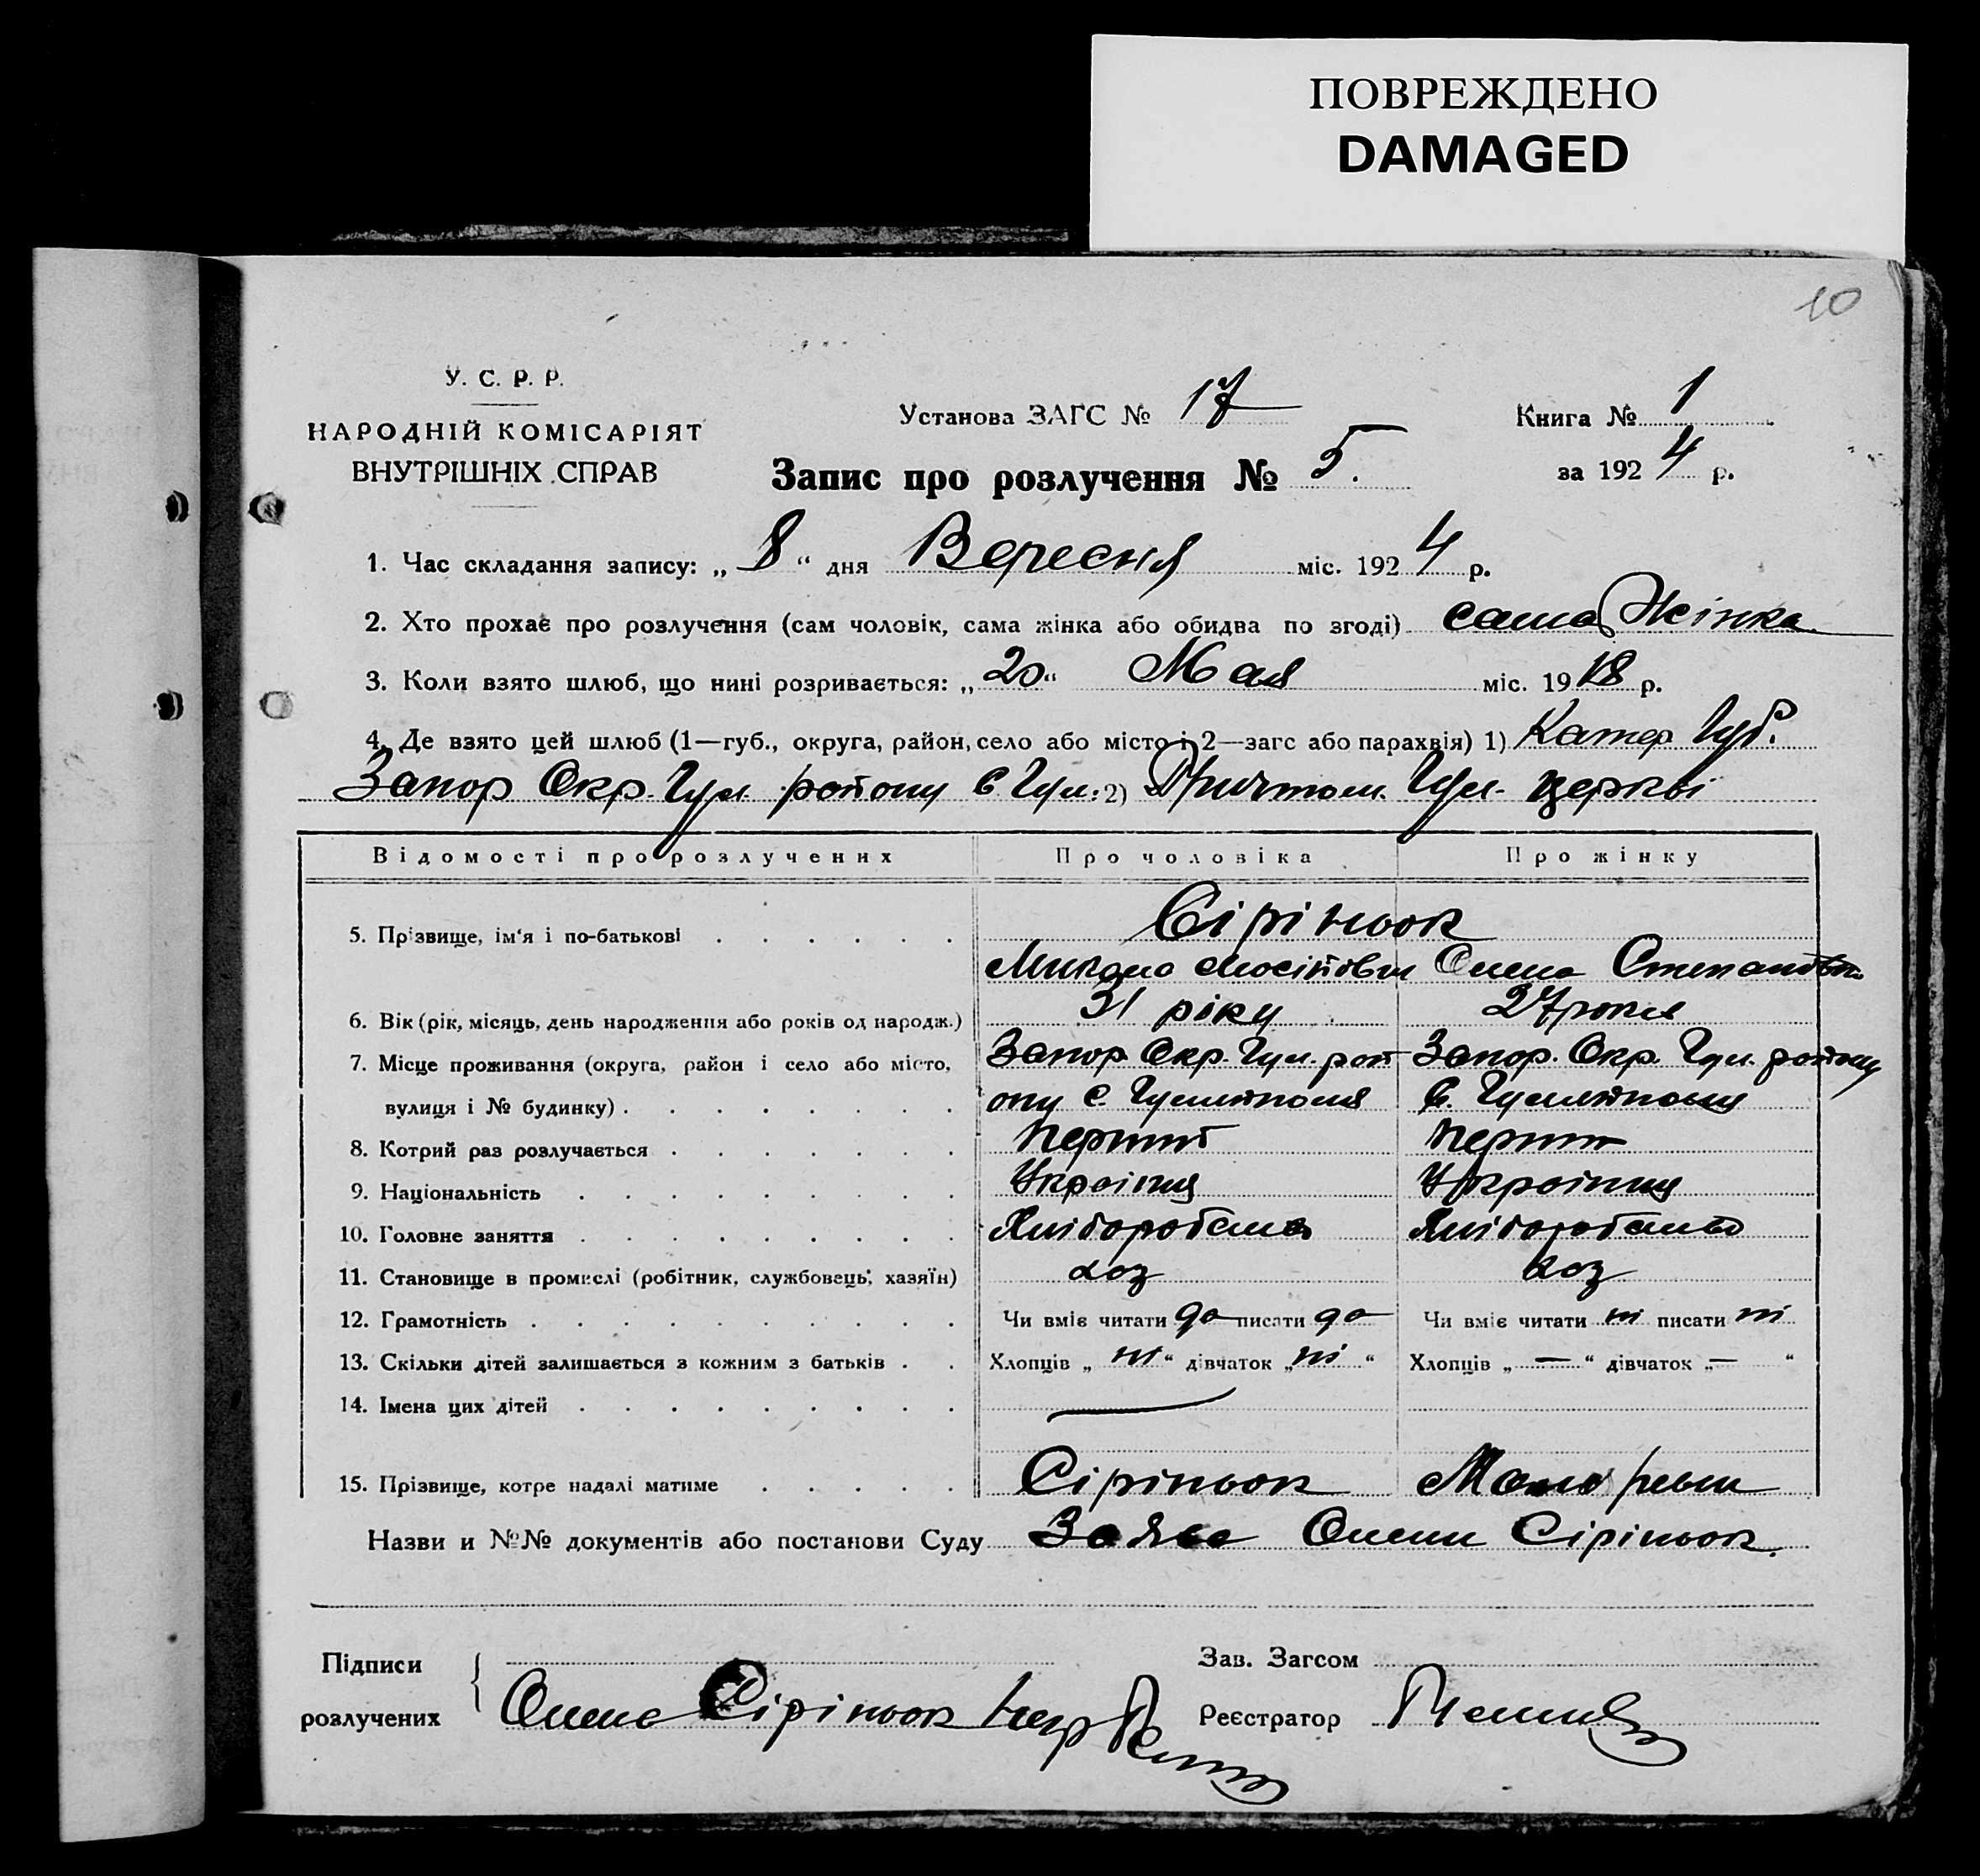 ПОВРЕЖДЕНО
DAMAGED
10
У. С. Р. Р.
НАРОДНІЙ КОМІСАРІЯТ
ВНУТРІШНІХ СПРАВ
Установа ЗАГС № 17
Книга № 1
Запис про розлучення № 5.
за 1924 р.
1. Час складання запису: „8“ дня Вересня міс. 1924 р.
2. Хто прохає про розлучення (сам чоловік, сама жінка або обидва по згоді) сама Жінка
3. Коли взято шлюб, що нині розривається: „20“ Мая міс. 1918 р.
4. Де взято цей шлюб (1—губ., округа, район, село або місто і 2—загс або парахвія) 1) Катер Губ.
Запор Окр. Гул. району С Гул: 2) Гул. церкві
Відомості про розлучених Про чоловіка Про жінку
5. Прізвище, ім'я і по-батькові Сіріньок
Микола Олена Степановн
6. Вік (рік, місяць, день народження або років од народж.) 31 ріку 27 роки
7. Місце проживання (округа, район і село або місто, Запор Окр. Гул. рай Запор. Окр. Гул. району
вулиця і № будинку) ону С. Гуляйполя С. Гуляйполя
8. Котрий раз розлучається Перший Перший
9. Національність Українця Українця
10. Головне заняття Хліборобства Хліборобство
11. Становище в промислі (робітник, службовець, хазяїн) хоз хоз
12. Грамотність Чи вміє читати да писати да Чи вміє читати ні писати ні
13. Скільки дітей залишається з кожним з батьків Хлопців „ні“ дівчаток „ні“ Хлопців „—“ дівчаток „—“
14. Імена цих дітей
15. Прізвище, котре надалі матиме Сіріньок
Назви и №№ документів або постанови Суду Заява Олени Сіріньок.
Підписи
розлучених Олена Сіріньок
Зав. Загсом
Реєстратор